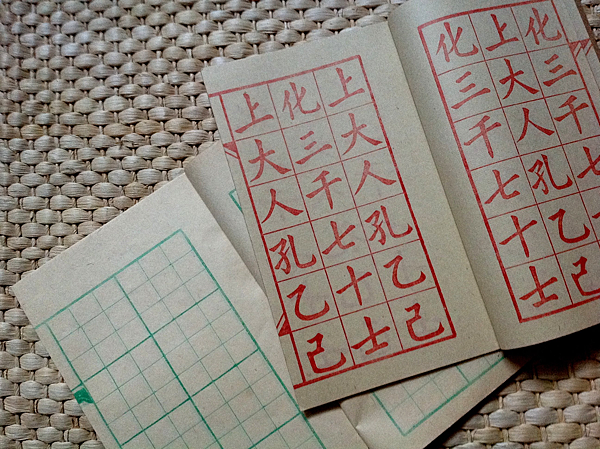 化三千七
上大人孔乙己
化三千七十士
上大人孔乙己
化三千七十士
上大人孔乙己